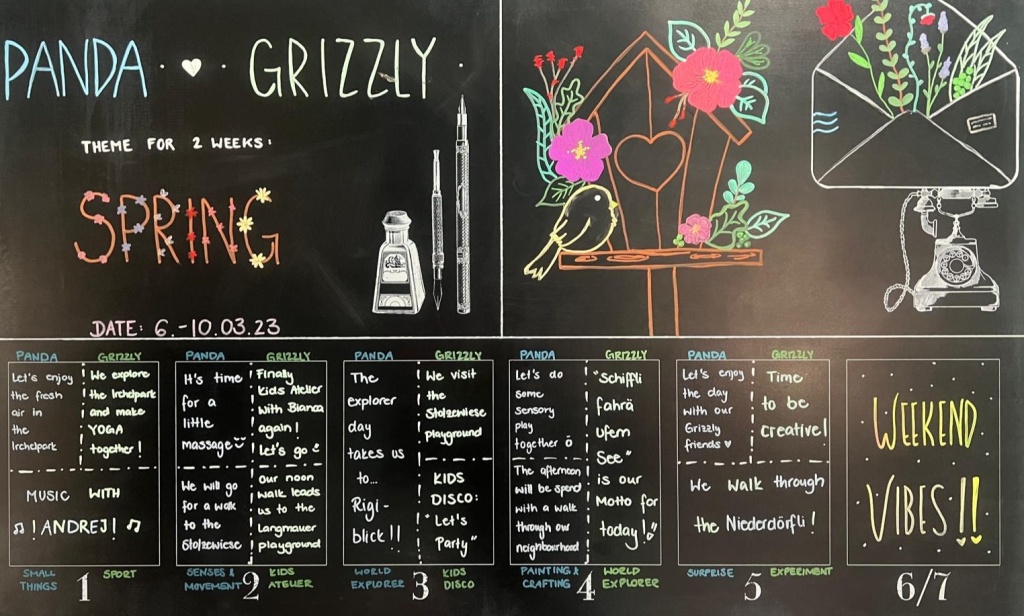 PANDA · ♥ · GRIZZLY ·
THEME FOR 2 WEEKS:
SPRING
DATE: 6.-10.03.23
PANDA
Let's enjoy
the fresh
air in
the
Irchelpark
GRIZZLY
We explore
the Irchelpark
and make
YOGA
together!
MUSIC WITH
♫ ! ANDREJ! ♫
SMALL
THINGS
1
SPORT
PANDA
It's time
for a
little
massage
GRIZZLY
Finally
Kids Atelier
with Bianca
again!
Let's go
We will go
for a walk
to the
Stolzewiese
our noon
walk leads
us to the
Langmauer
playground
SENSES &
MOVEMENT
2
KIDS
ATELIER
PANDA
The
explorer
day
takes us
to...
Rigi-
blick!!
GRIZZLY
We visit
the
Stolzewiese
playground
KIDS
DISCO:
"Let's
Party"
WORLD
EXPLORER
3
KIDS
DISCO
PANDA
Let's do
some
sensory
play
together ö
The afternoon
will be spend
with a walk
through our
neighbourhood
GRIZZLY
"Schiffli
fahrä
Ufem
See"
is our
Motto for
today!
PAINTING &
CRAFTING
4
WORLD
EXPLORER
PANDA
Let's enjoy
the day
with our
Grizzly
friends ♥
GRIZZLY
Time
to be
creative!
We walk through
the Niederdörfli!
SURPRISE
5
EXPERIMENT
WEEKEND
VIBES!!
6/7